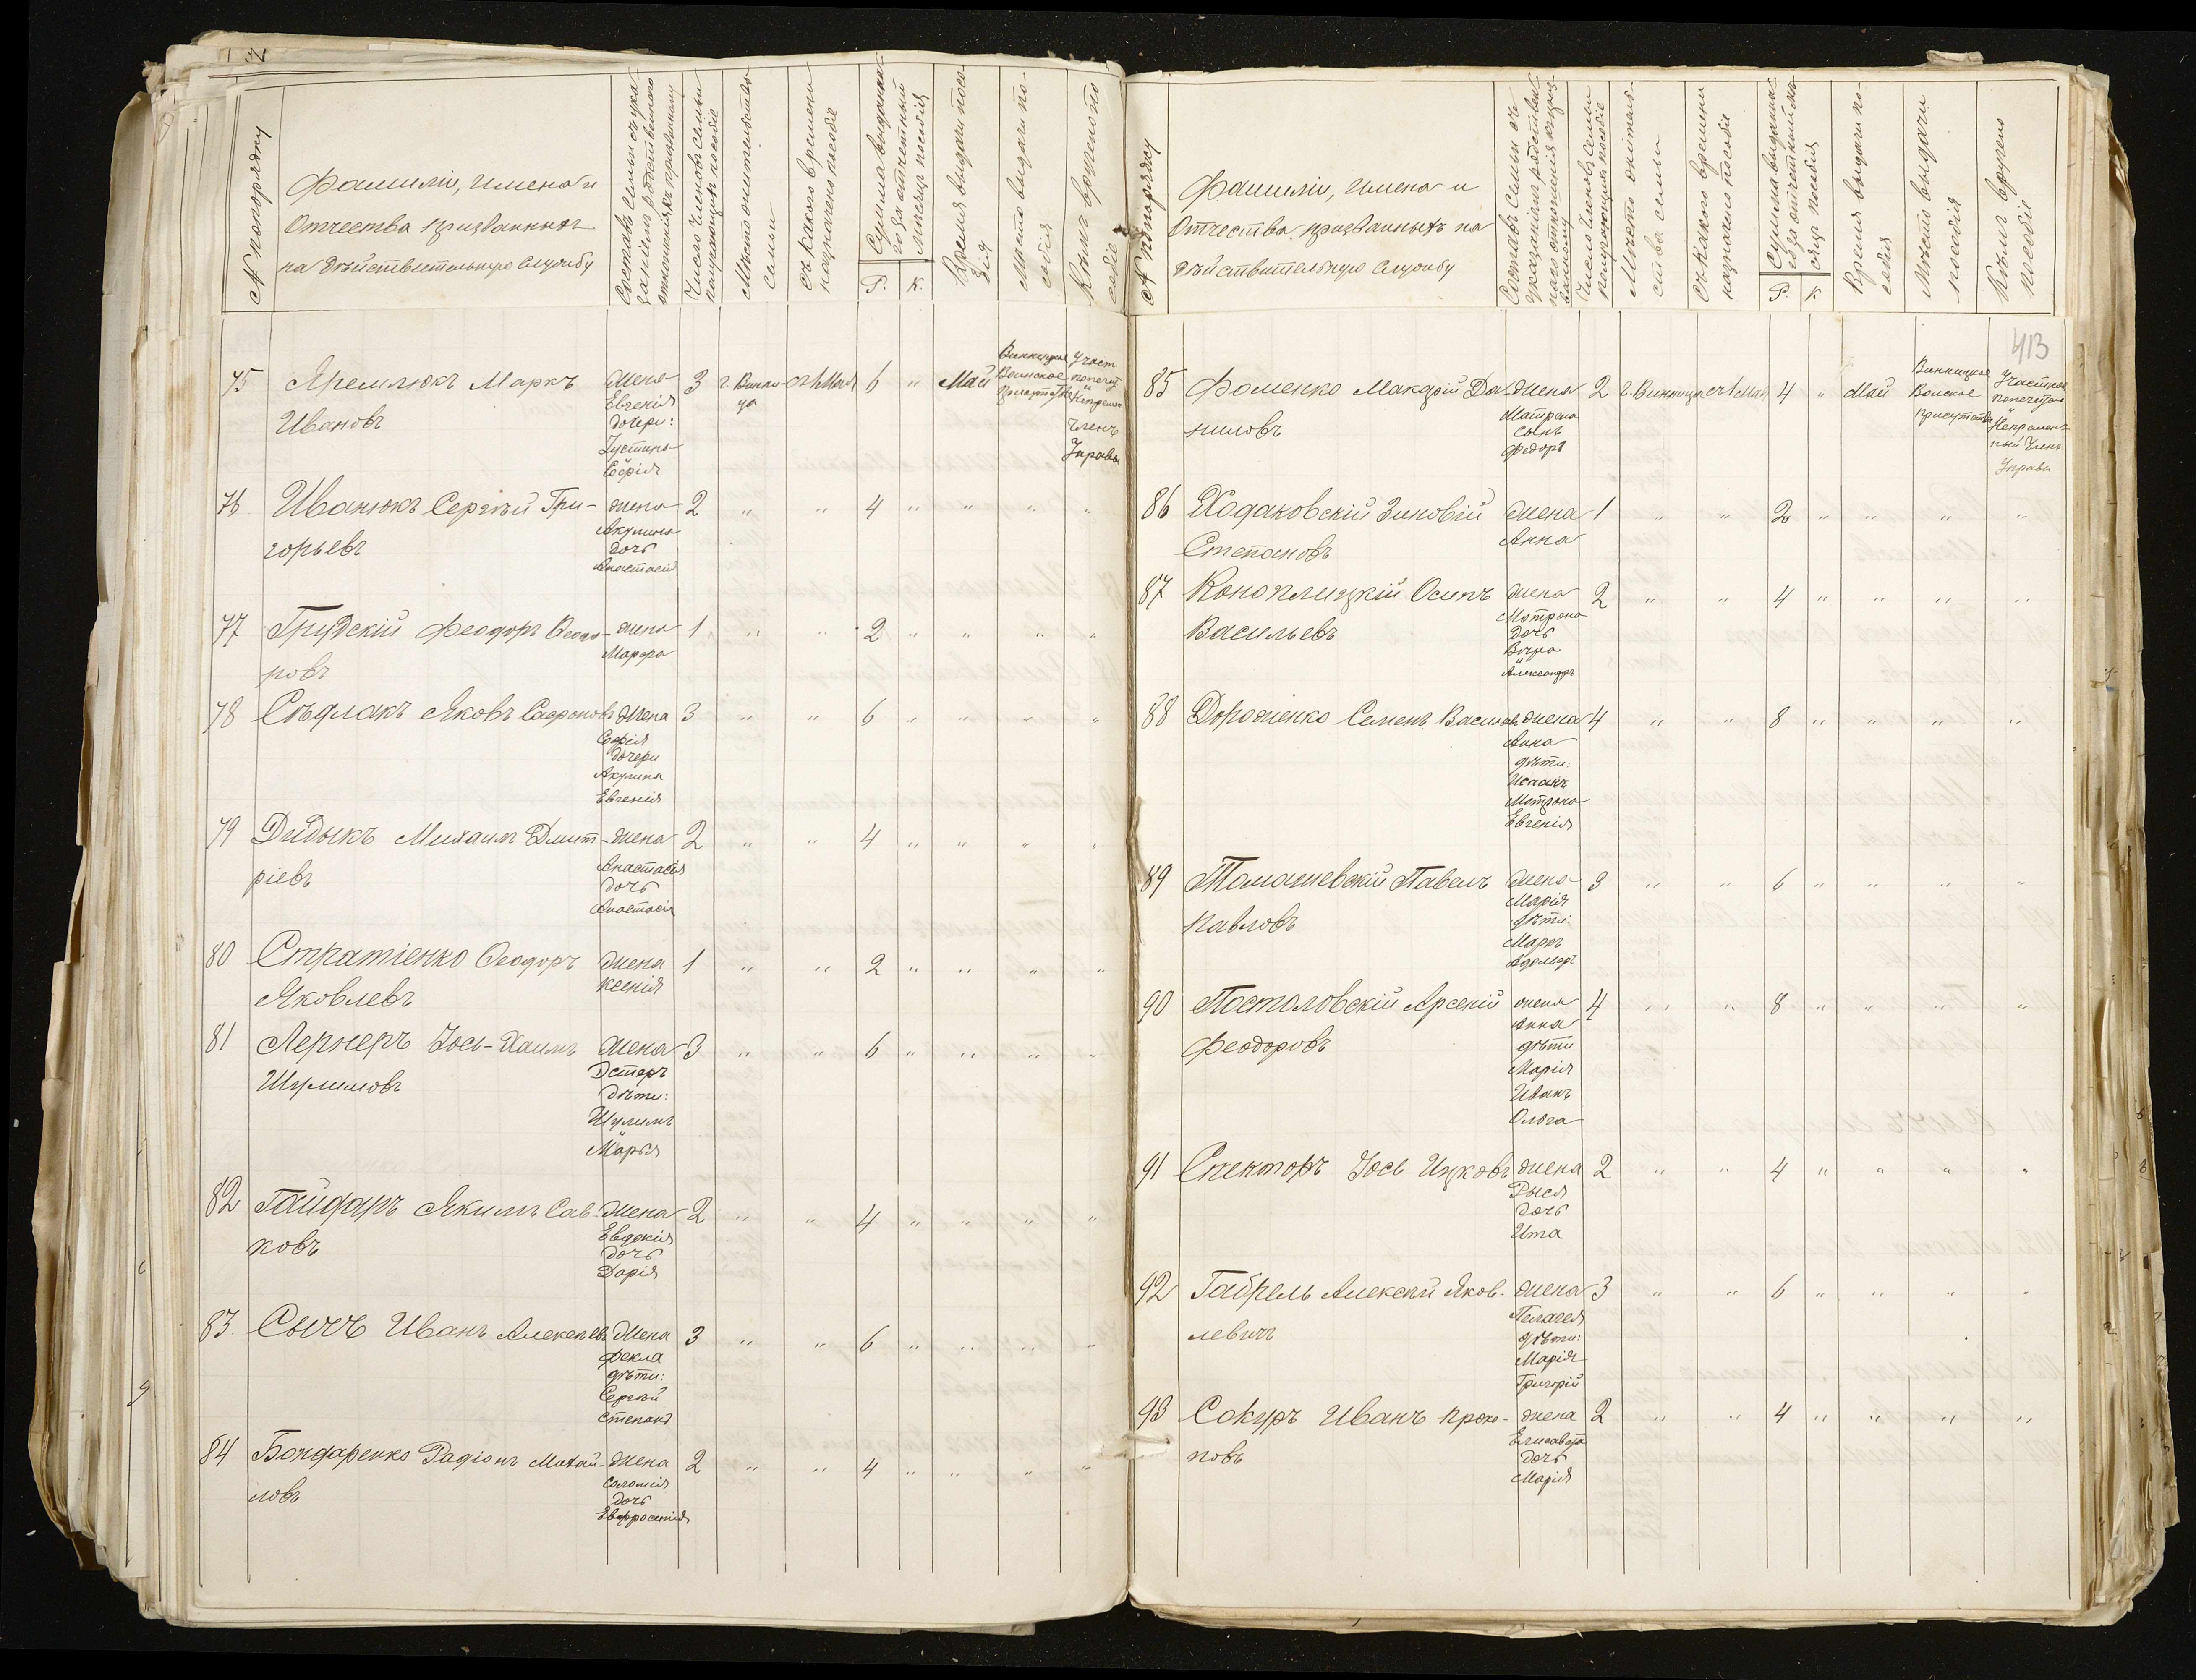 № по порядку
Фамилія, имена и
Отчества призванныхъ
на дѣйствительную службу
Составъ семьи съ ука-
заніемъ родственнаго
отношенія къ призванному
Число членовъ семьи
получающихъ пособіе
Мѣсто жительства
семьи
съ какого времени
назначено пособіе
Сумма выданна-
го за отчетный
мѣсяцъ пособія
Р.
К.
Время выдачи посо-
бія
Мѣсто выдачи по-
собія
Кѣмъ вручено по
собіе
75 Яремлюкъ Маркъ жена 3 г. Винни- съ 1 Мая 6 " Май Винницкое Участ.
Ивановъ Евгенія ца Воинское попечит.
дочери: Присутствіе и Непремен.
Устинья Членъ
Софія Управы
76 Иванюкъ Сергѣй Гри- жена 2 " " 4 " " " "
горьевъ Акулина
дочь
Анастасія
77 Грудскій Феодоръ Феодо- жена 1 " " 2 " " " "
ровъ Марфа
78 Сѣдлакъ Яковъ Сафроновъ жена 3 " " 6 " " " "
Софія
дочери
Акулина
Евгенія
79 Дидыкъ Михаилъ Дмит- жена 2 " " 4 " " " "
ріевъ Анастасія
дочь
Анастасія
80 Стратіенко Феодоръ жена 1 " " 2 " " " "
Яковлевъ Ксенія
81 Лернеръ Іось-Хаимъ жена 3 " " 6 " " " "
Шулимовъ Эстеръ
дѣти:
Шулимъ
Марья
82 Гайдаръ Якимъ Сав- жена 2 " " 4 " " " "
ковъ Евдокія
дочь
Дарія
83. Сычъ Иванъ Алексѣевъ жена 3 " " 6 " " " "
Фекла
дѣти:
Сергѣй
Степанъ
84 Бондаренко Радіонъ Михай- жена 2 " " 4 " " " "
ловъ Соломія
дочь
Евфросинія
№ по порядку
Фамиліи, имена и
Отчества призванныхъ на
дѣйствительную службу
Составъ семьи съ
указаніемъ родствен
наго отношенія къ приз-
ванному
Число членовъ семьи
получающихъ пособіе
Мѣсто житель-
ства семьи
Съ какого времени
назначено пособіе
Сумма выданна-
го за отчетный мѣ-
сяцъ пособія
Р.
К
Время выдачи по-
собія
Мѣсто выдачи
пособія
Кѣмъ вручено
пособіе
413
85 Фоменко Макарій Да- жена 2 г. Винница съ 1 Мая 4 " Май Винницкое Участков.
ниловъ Матрена Воинское попечит.
сынъ Присутствіе и Непремен-
Федоръ ный Членъ
Управы
86 Ходаковскій Зиновій жена 1 " " 2 " " " "
Степановъ Анна
87 Коноплицкій Осипъ жена 2 " " 4 " " " "
Васильевъ Мотрона
дочь
Вѣра
Александръ
88 Дороженко Семенъ Васильевъ жена 4 " " 8 " " " "
Анна
дѣти:
Исаакъ
Мотрона
Евгенія
89 Томашевскій Павелъ жена 3 " " 6 " " " "
Павловъ Марія
дѣти:
Маркъ
90 Постоловскій Арсеній жена 4 " " 8 " " " "
Феодоровъ Анна
дѣти
Марія
Иванъ
Ольга
91 Спекторъ Іось Ицковъ жена 2 " " 4 " " " "
Рыся
дочь
Ита
92 Габрель Алексѣй Яков- жена 3 " " 6 " " " "
левичъ Пелагея
дѣти:
Марія
Григорій
93 Сокуръ Иванъ Проко- жена 2 " " 4 " " " "
повъ Елисавета
дочь
Марія